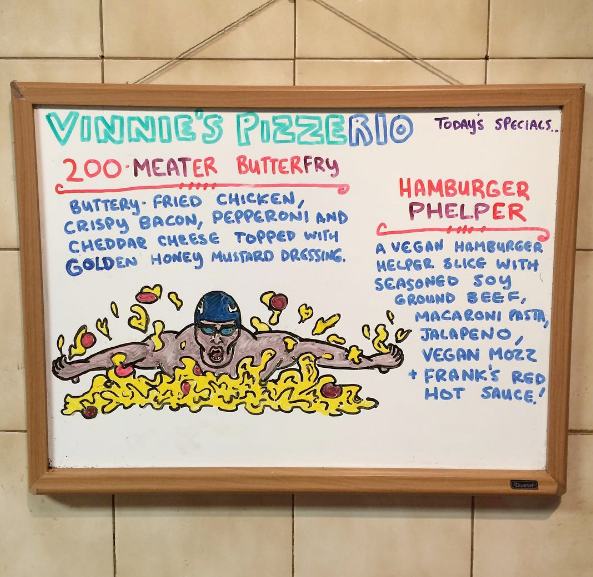 VINNIE'S PIZZERIO
TODAY'S SPECIALS...
200-MEATER BUTTERFRY
BUTTERY-FRIED CHICKEN,
CRISPY BACON, PEPPERONI AND
CHEDDAR CHEESE TOPPED WITH
GOLDEN HONEY MUSTARD DRESSING.
HAMBURGER
PHELPER
A VEGAN HAMBURGER
HELPER SLICE WITH
SEASONED SOY
GROUND BEEF,
MACARONI PASTA,
JALAPENO,
VEGAN MOZZ
+ FRANK'S RED
HOT SAUCE!